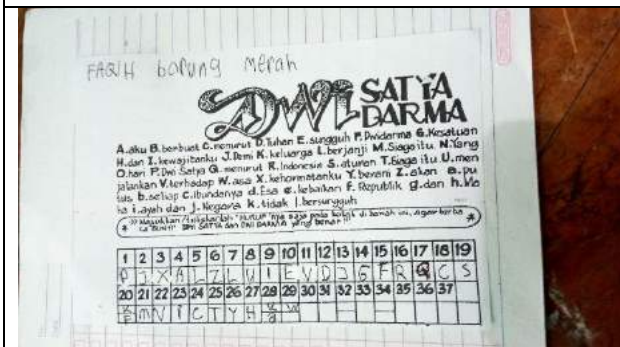 FAQIH barung merah
DWI SATYA
DARMA
A.aku B.berbuat C.menurut D.Tuhan E.sungguh F.Dwidarma G.Kesatuan
H.dan I.kewajibanku J.Demi K.keluarga L.berjanji M.Siaga itu N.Yang
O.hari P.Dwi Satya Q.menurut R.Indonesia S.aturan T.Siaga itu U.men
jalankan V.terhadap W.asa X.kehormatanku Y.berani Z.akan a.pu
tus b.setiap c.ibundanya d.Esa e.kebaikan f.Republik g.dan h.Ma
ha i.ayah dan j.Negara k.tidak l.bersungguh
nya saja pada kotak di bawah ini, agar
DWI SATYA dan DWI DARMA yang benar
1 2 3 4 5 6 7 8 9 10 11 12 13 14 15 16 17 18 19
P J X A L Z L U I E V D J G F R Q C S
20 21 22 23 24 25 26 27 28 29 30 31 32 33 34 35 36 37
M V i C T Y H W